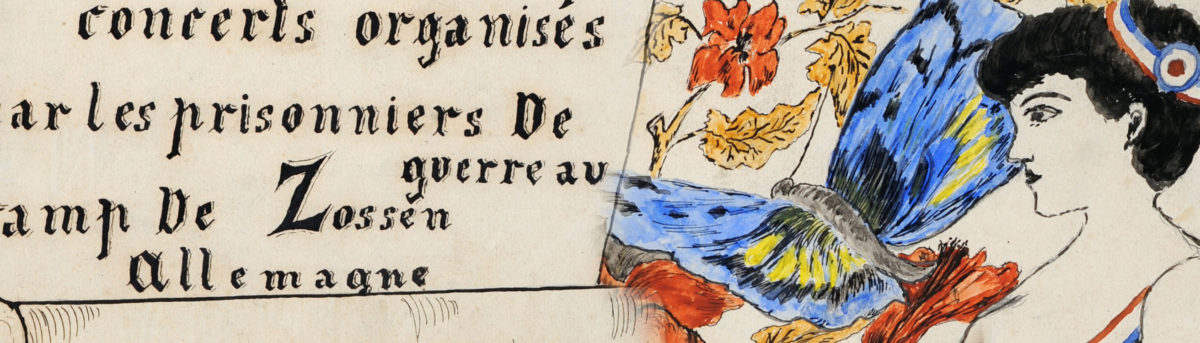 concerts organisés
ar les prisonniers De
guerre au
amp De Zossen
Allemagne